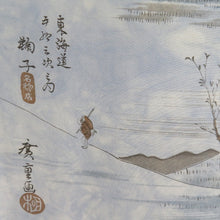 東海道
五十三次之内
鞠子
名物茶店
廣重画